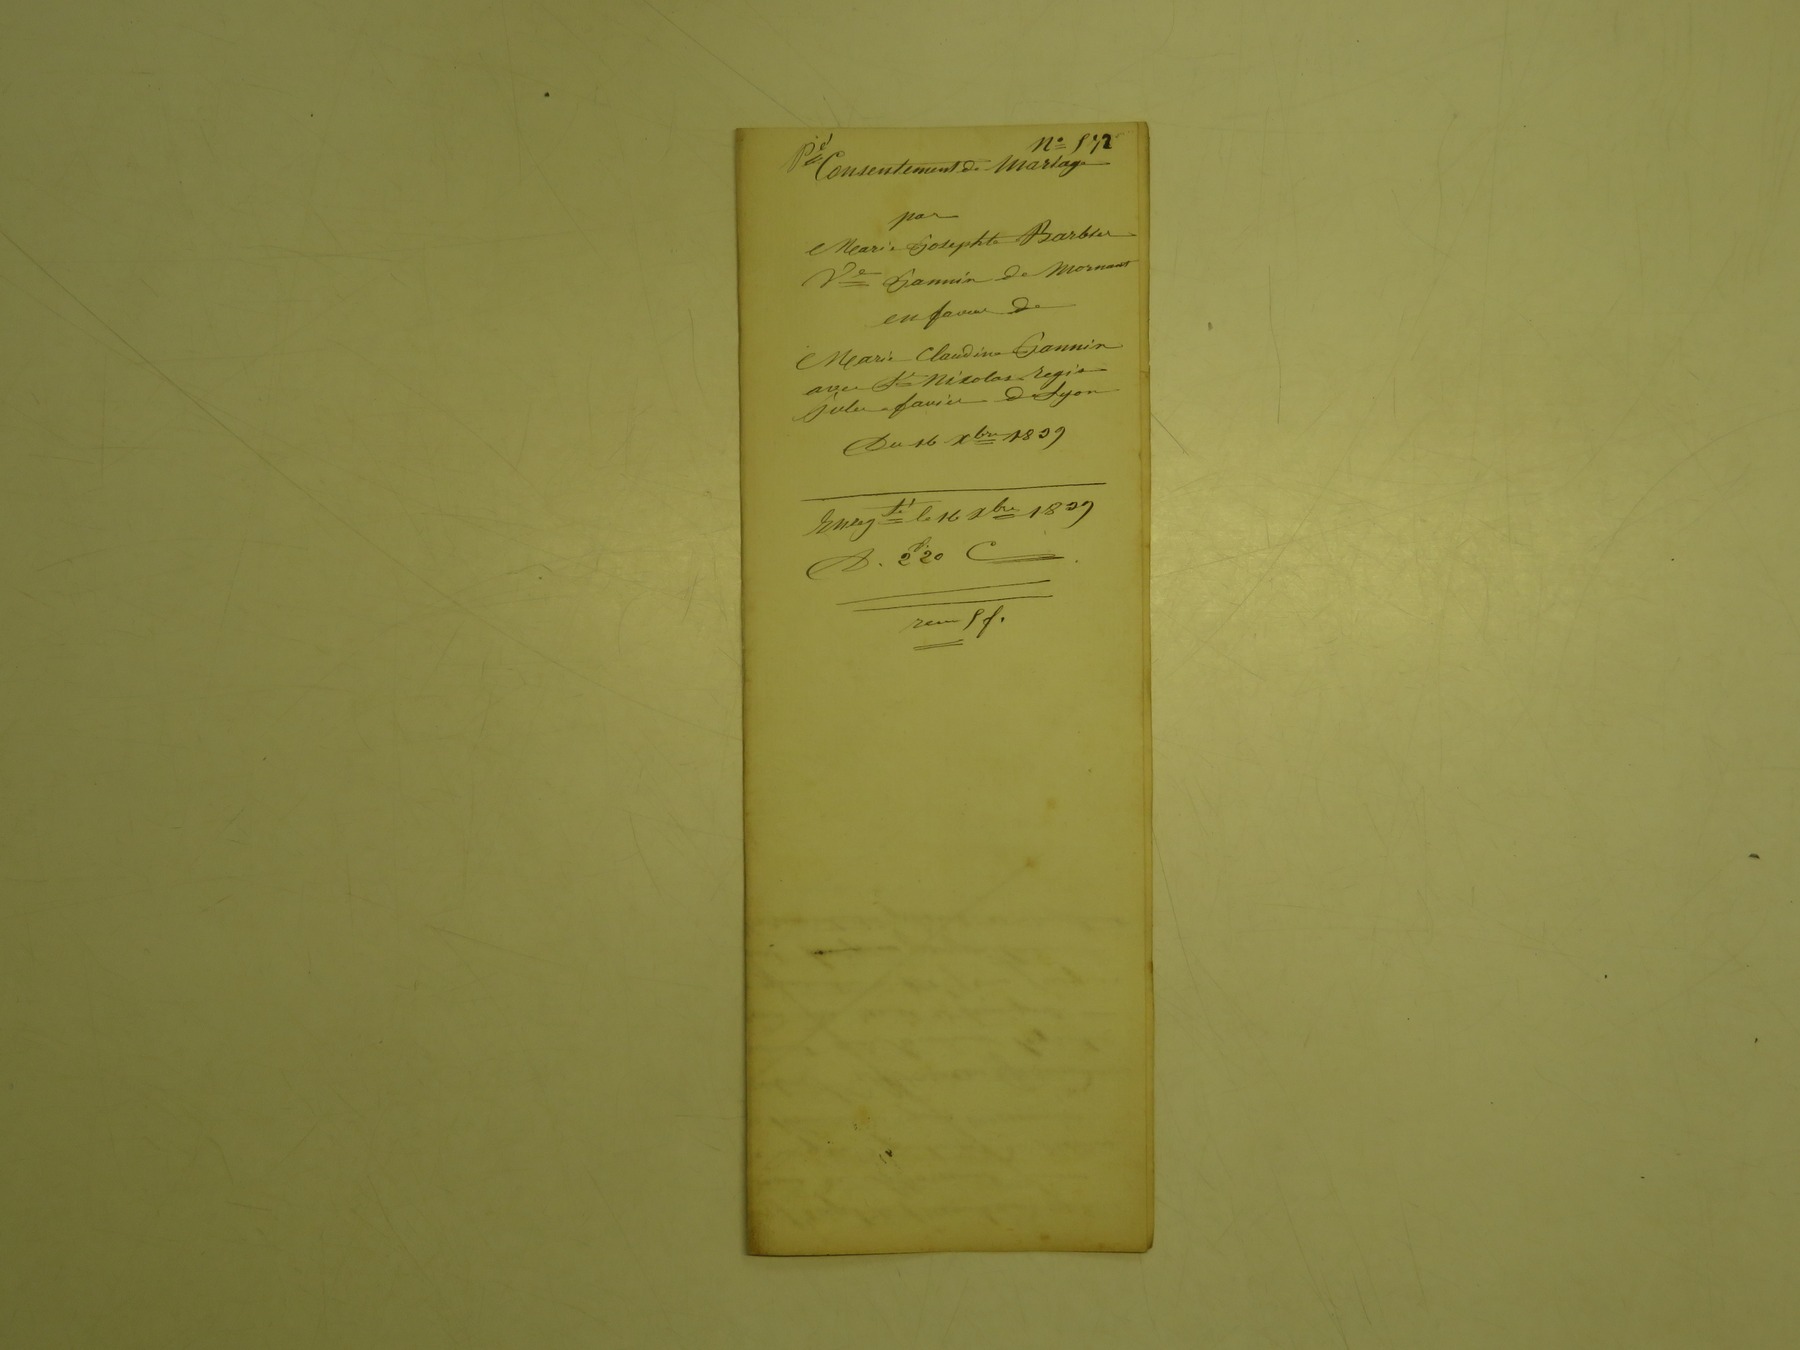 N° 572
Consentement de Mariage
par
Marie Josephte Barbier
Ve Jannin de Mornant
en faveur de
Marie Claudine Jannin
avec Sr Nicolas Regis
Jules favier de Lyon
Du 16 Xbre 1839
Enregté le 16 Xbre 1839
D. 2f 20 C
reçu 5 f.